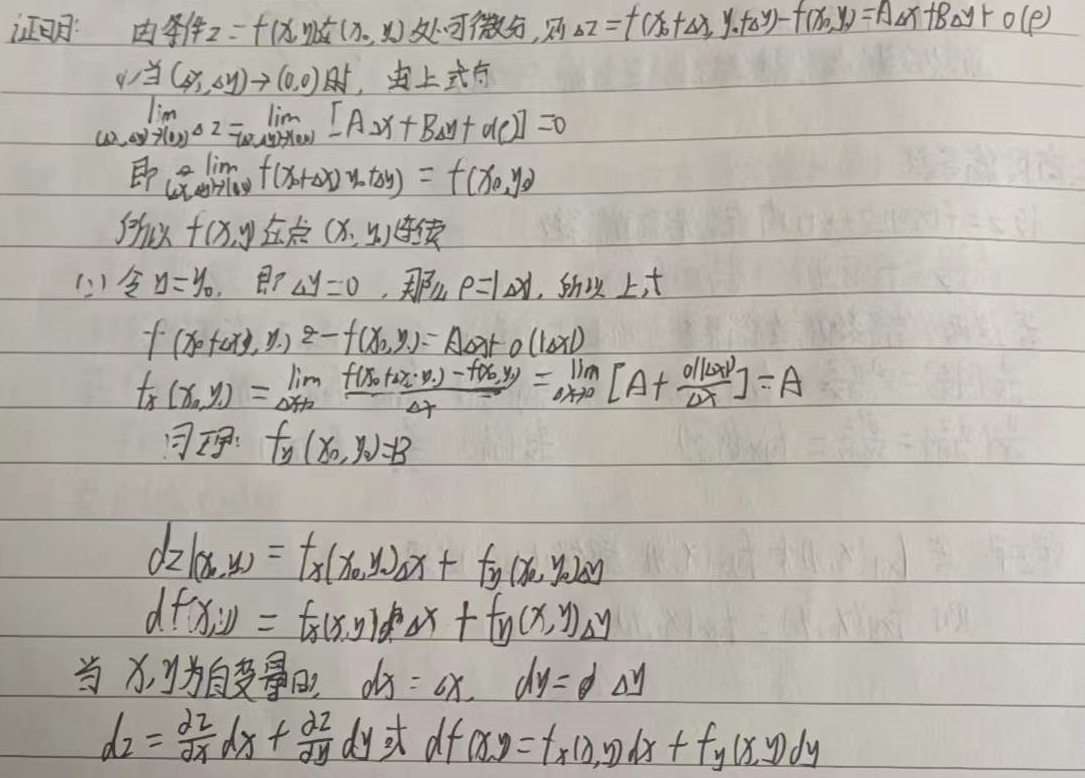 证明: 由条件z=f(x,y)在(x₀,y₀)处可微分,则Δz=f(x₀+Δx, y₀+Δy)-f(x₀,y₀)=AΔx+BΔy+o(ρ)
(1)当(Δx,Δy)→(0,0)时, 由上式有
lim(Δx,Δy)→(0,0) Δz = lim(Δx,Δy)→(0,0) [AΔx+BΔy+o(ρ)]=0
即 lim(Δx,Δy)→(0,0) f(x₀+Δx, y₀+Δy) = f(x₀,y₀)
所以 f(x,y)在点(x₀,y₀)连续
(2) 令y=y₀, 即Δy=0, 那么ρ=|Δx|, 所以上式
f(x₀+Δx, y₀)-f(x₀,y₀)=AΔx+o(|Δx|)
fx(x₀,y₀) = lim Δx→0 (f(x₀+Δx,y₀)-f(x₀,y₀))/Δx = lim Δx→0 [A+o(|Δx|)/Δx]=A
同理: fy(x₀,y₀)=B
dz|(x₀,y₀) = fx(x₀,y₀)Δx + fy(x₀,y₀)Δy
df(x,y) = fx(x,y)Δx + fy(x,y)Δy
当 x,y为自变量时, dx=Δx, dy=Δy
dz = ∂z/∂x dx + ∂z/∂y dy 或 df(x,y)=fx(x,y)dx+fy(x,y)dy